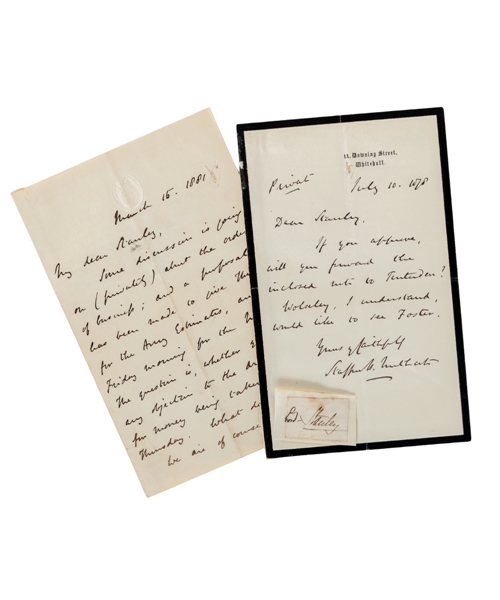 March 16. 1881
My dear Stanley,
Some discussion is going
on (privately) about the order
of business; and a proposal
has been made to give
for the Army Estimates, and
Friday morning for the
The question is, whether
any objection to the
for money being taken
Thursday. What do
We are of course
11, Downing Street,
Whitehall.
Private July 10. 1878
Dear Stanley,
If you approve,
will you forward the
inclosed note to Tenterden?
Wolseley, I understand,
would like to see Foster.
Yours faithfully
Stafford H. Northcote
Stanley